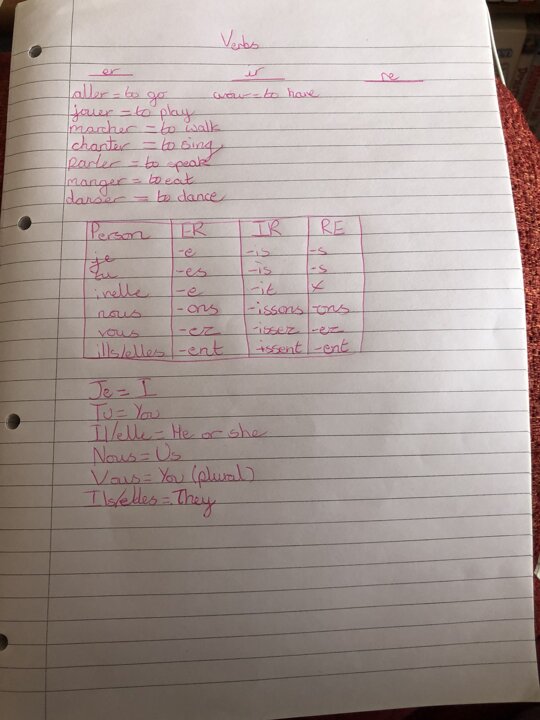 Verbs
er ir re
aller = to go avoir = to have
jouer = to play
marcher = to walk
chanter = to sing
parler = to speak
manger = to eat
danser = to dance
Person ER IR RE
je -e -is -s
tu -es -is -s
-e -it x
nous -ons -issons -ons
vous -ez -issez -ez
ills/elles -ent -issent -ent
Je = I
Tu = You
Il/elle = He or she
Nous = Us
Vous = You (plural)
Ils/elles = They